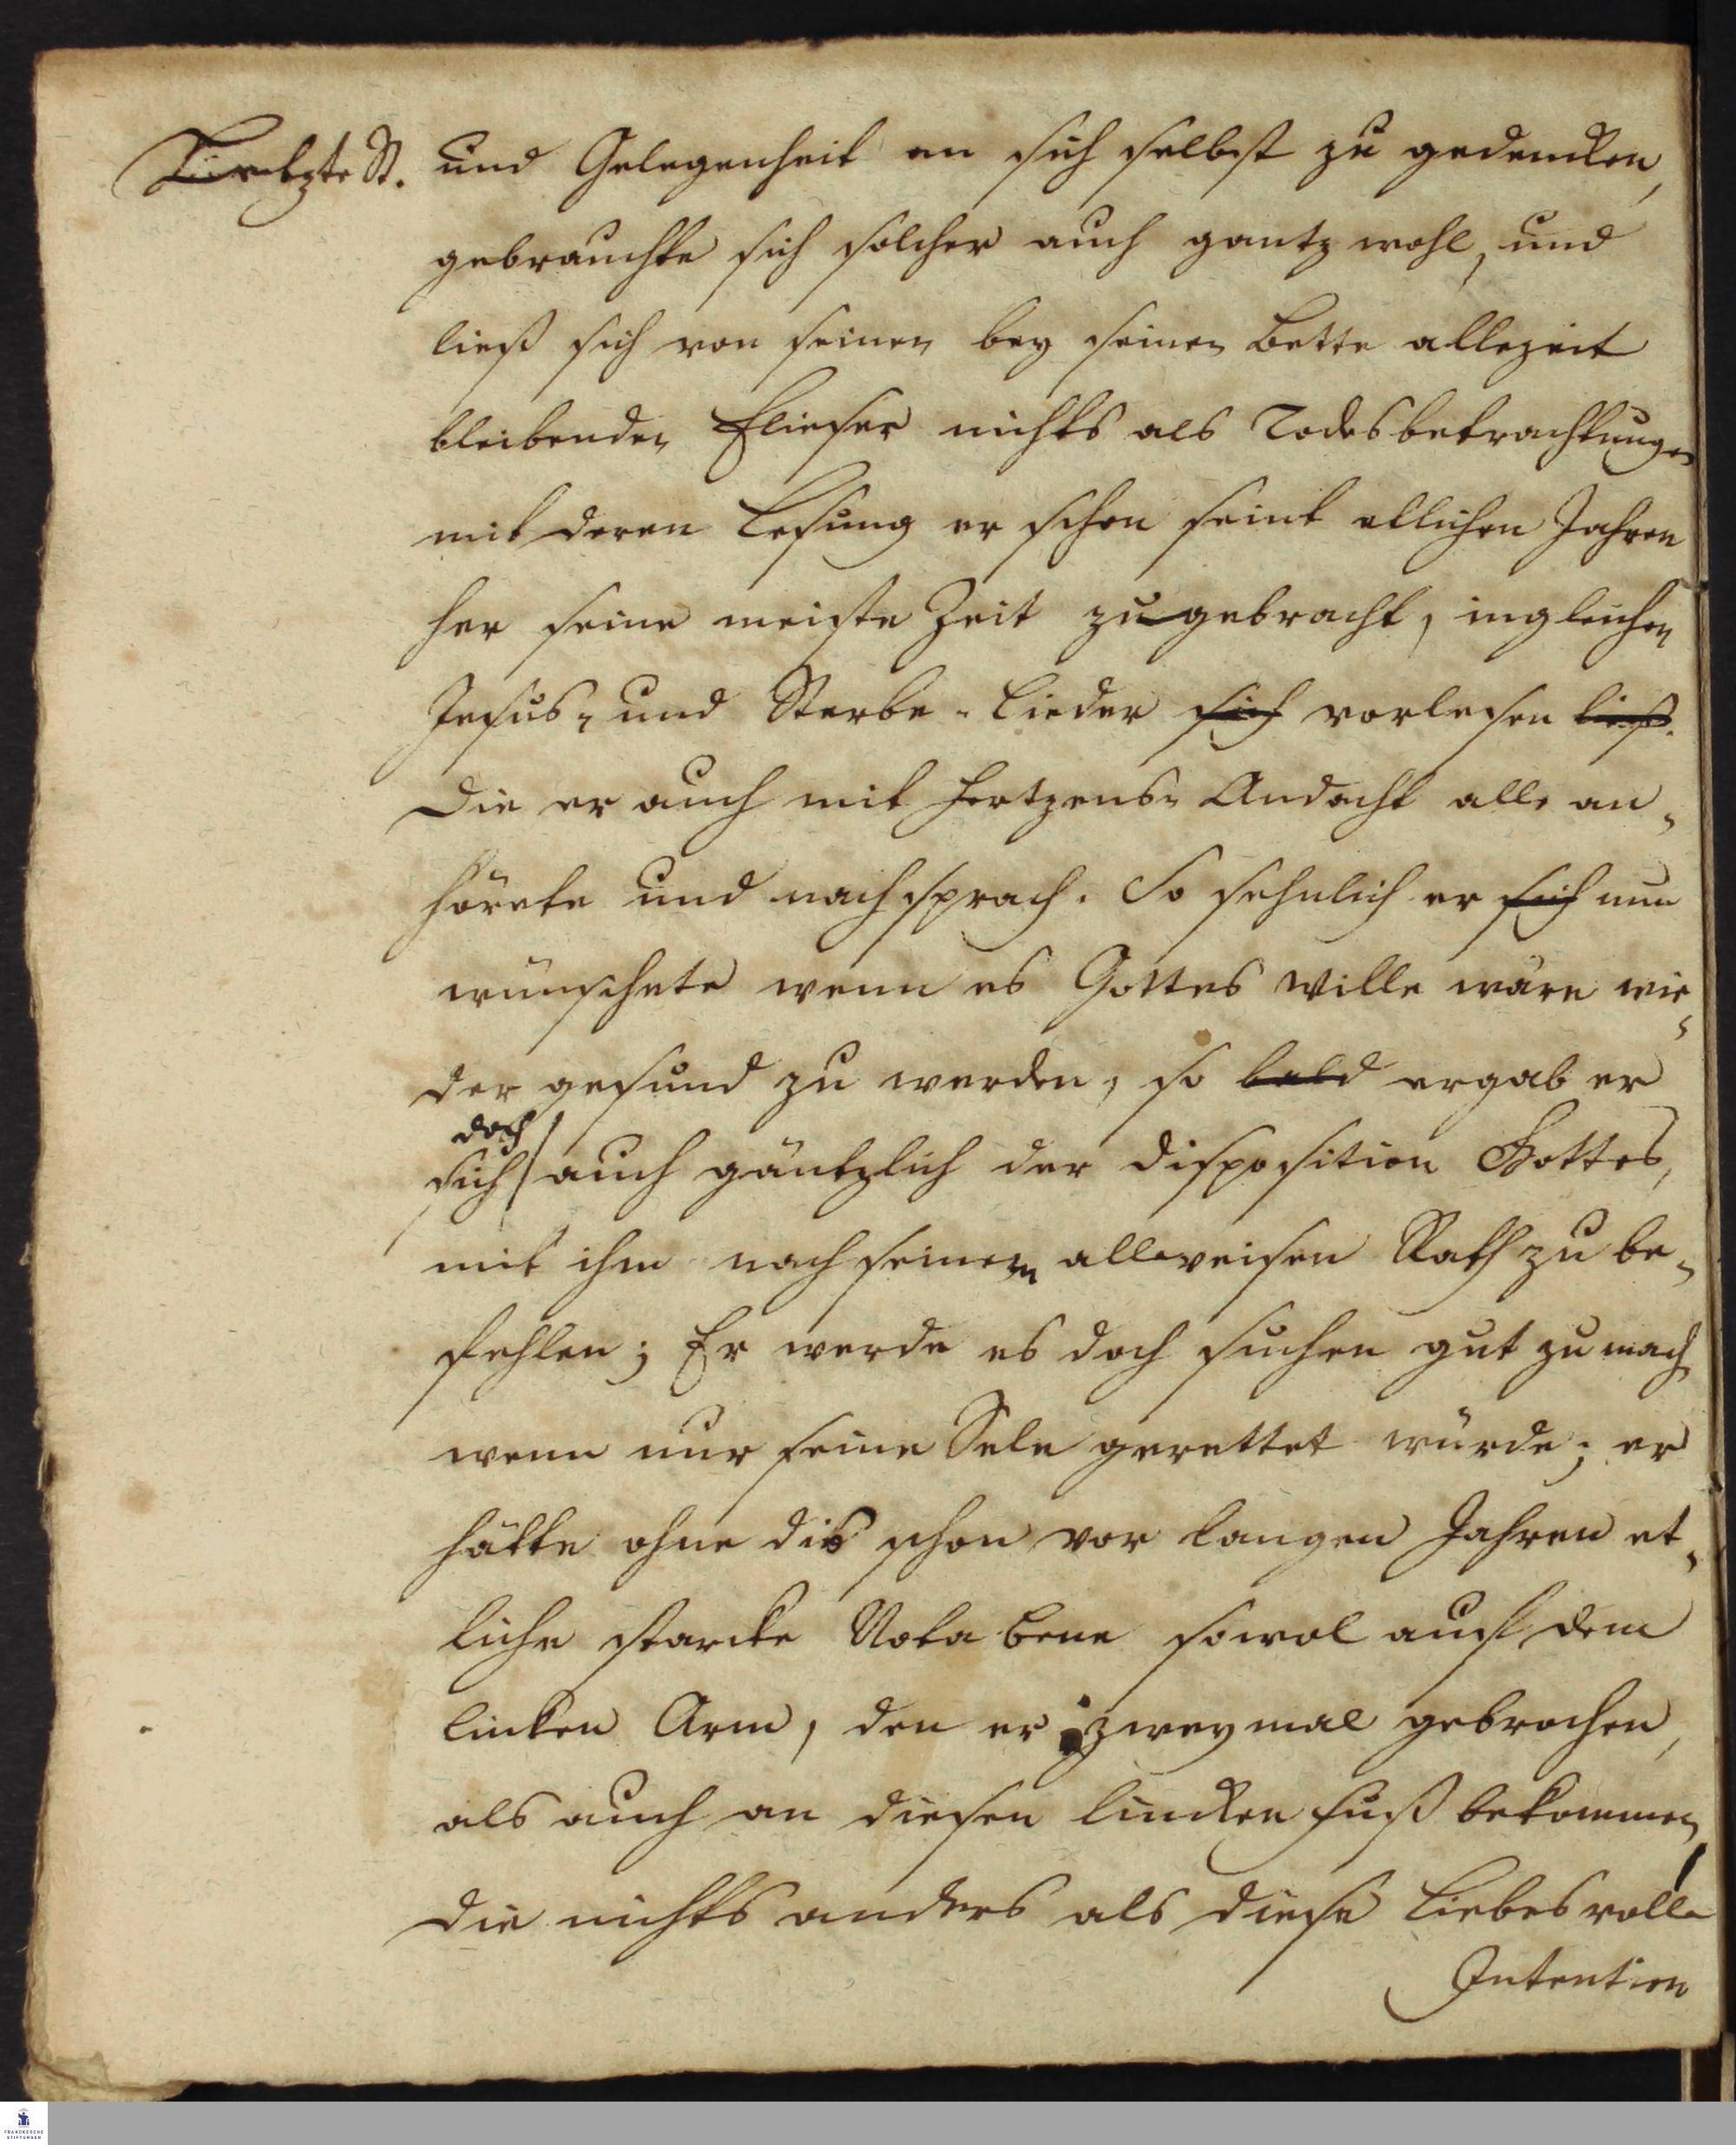 letzte St.
und Gelegenheit an sich selbst zu gedencken,
gebrauchte sich solcher auch gantz wohl, und
ließ sich von seinen bey seinen Bette allezeit
bleibenden Elieser nichts als Todesbetrachtungen
mit deren Lesung er schon seint etlichen Jahren
her seine meiste Zeit zugebracht, ingleichen
Jesus- und Sterbe-Lieder sich vorlesen ließ.
Die er auch mit Hertzens-Andacht alle an-
hörete und nachsprach. So sehnlich er sich nun
wünschete wenn es Gottes Wille wäre wie-
der gesund zu werden, so bald ergab er
doch
sich auch gäntzlich der disposition Gottes,
mit ihm nach seinem allweisen Rath zu be-
fehlen; Er werde es doch suchen gut zu mach
wenn nur seine Sele gerettet würde; er
hätte ohne dis schon vor langen Jahren et-
liche starcke Nota bene sowol auf dem
lincken Arm, den er zweymal gebrochen,
als auch an diesen lincken Fuß bekommen,
die nichts anders als diese Liebesvolle
Intention
FRANCKESCHE
STIFTUNGEN